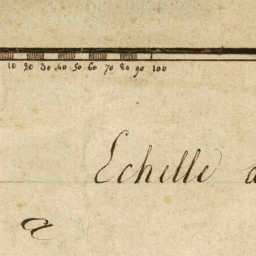 10 20 30 40 50 60 70 80 90 100
Echelle d
a